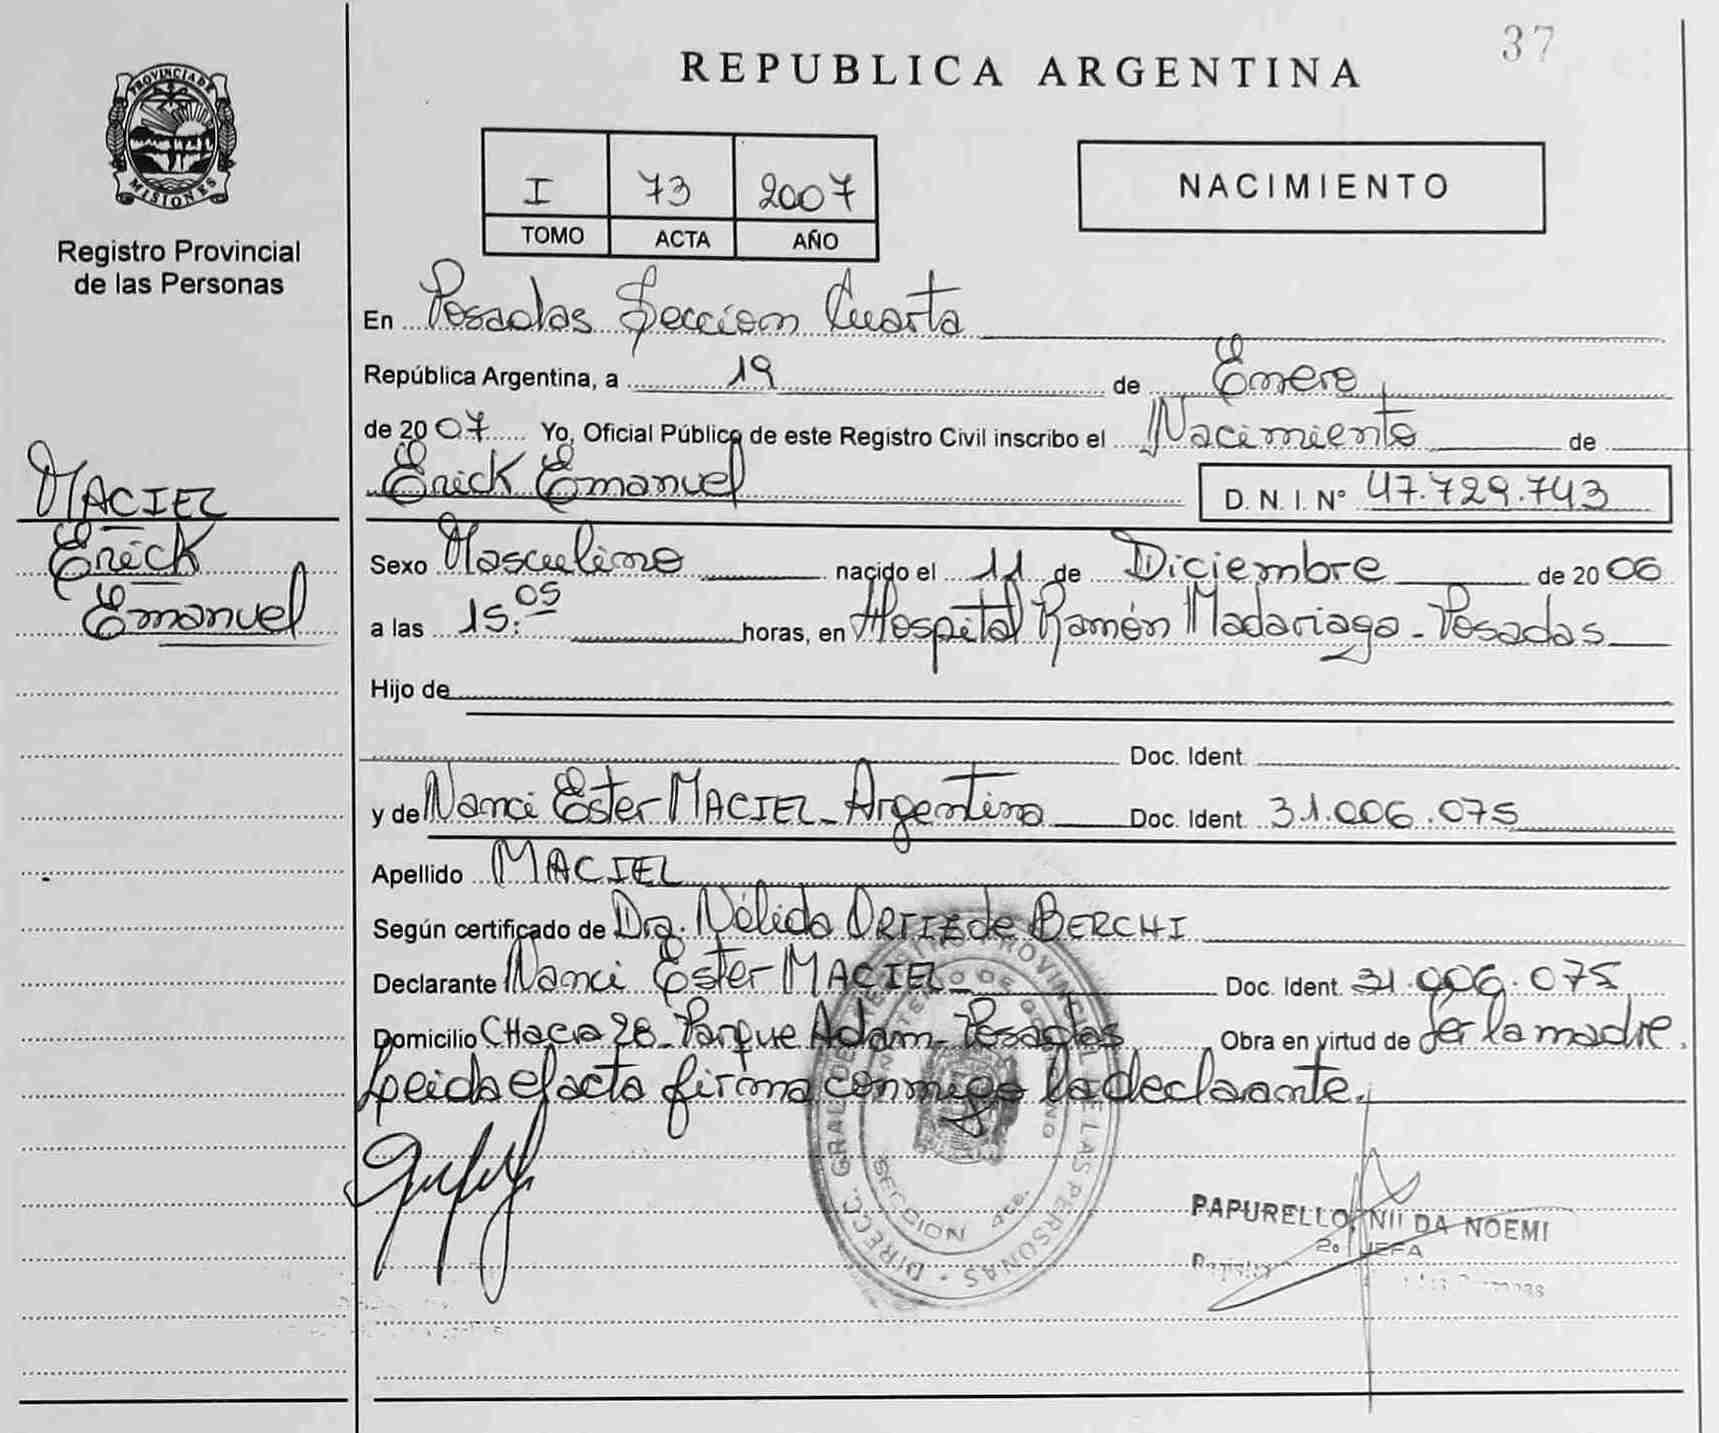 37
REPUBLICA ARGENTINA
PROVINCIA DE
MISIONES
Registro Provincial
de las Personas
I 73 2007
TOMO ACTA AÑO
NACIMIENTO
En Posadas Seccion Cuarta
República Argentina, a 19 de Enero
de 2007 Yo, Oficial Público de este Registro Civil inscribo el Nacimiento de
Erick Emanuel D. N. I. N° 47.729.743
MACIEL
Erick
Emanuel
Sexo Masculino nacido el 11 de Diciembre de 2006
a las 15:05 horas, en Hospital Ramón Madariaga - Posadas
Hijo de
Doc. Ident
y de Nanci Ester MACIEL - Argentina Doc. Ident 31.006.075
Apellido MACIEL
Según certificado de Dra. Nélida ORTIZ de BERCHI
Declarante Nanci Ester MACIEL - Doc. Ident 31.006.075
Domicilio CHacra 28 - Parque Adam - Posadas Obra en virtud de ser la madre.
Leida el acta firma conmigo la declarante.
DIRECC. GRAL. DE REGISTRO PROVINCIAL DE LAS PERSONAS
MINISTERIO DE GOBIERNO
SECCION 4ta.
PAPURELLO, NILDA NOEMI
2o JEFA